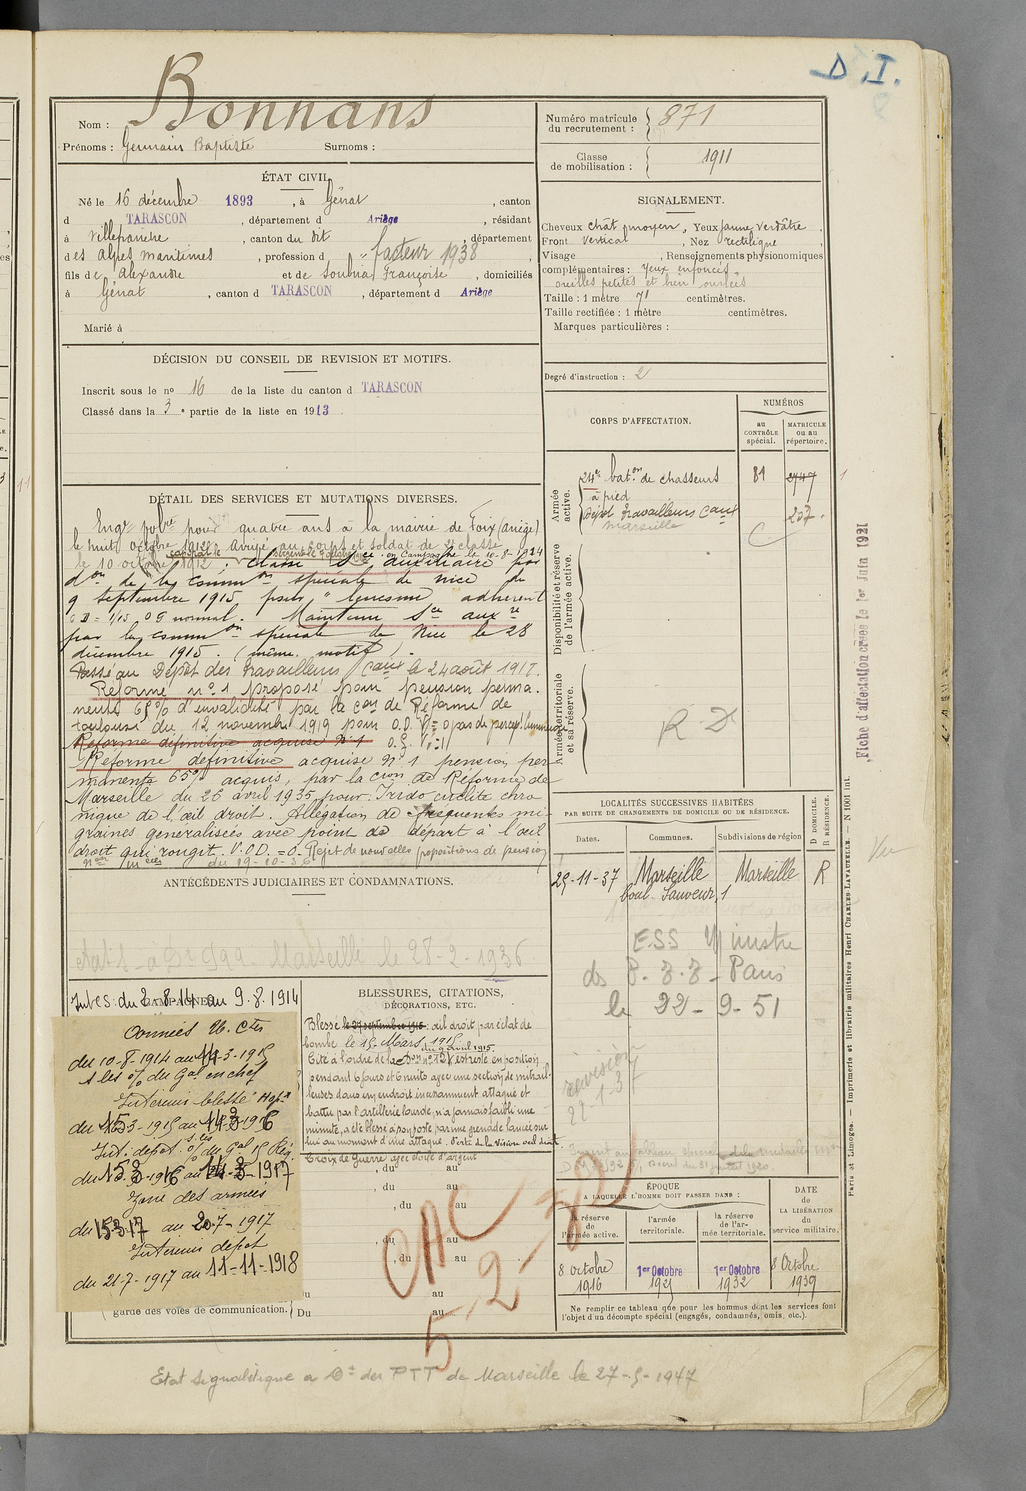 D.I.
Nom : Bonnans
Prénoms : Germain Baptiste Surnoms :
Numéro matricule du recrutement : 871
Classe de mobilisation : 1911
ÉTAT CIVIL
Né le 16 décembre 1893, à Génat, canton
d TARASCON, département d Ariège, résidant
à Villefranche, canton du dit, département
des Alpes maritimes, profession d facteur 1938
fils de Alexandre et de Françoise, domiciliés
à Génat, canton d TARASCON, département d Ariège
Marié à
SIGNALEMENT.
Cheveux chât moyen, Yeux jaune verdâtre
Front vertical, Nez rectiligne
Visage , Renseignements physionomiques
complémentaires : Yeux enfoncés
oreilles petites et bien ourlées
Taille : 1 mètre 71 centimètres.
Taille rectifiée : 1 mètre centimètres.
Marques particulières :
Degré d'instruction : 2
DÉCISION DU CONSEIL DE REVISION ET MOTIFS.
Inscrit sous le nº 16 de la liste du canton d TARASCON
Classé dans la 3e partie de la liste en 1913
CORPS D'AFFECTATION.
NUMÉROS
au CONTRÔLE spécial.
MATRICULE ou au répertoire.
Armée active.
24e bat.on de chasseurs 81 2747
à pied
Dépôt Travailleurs Caux 257
Marseille
Disponibilité et réserve de l'armée active.
Armée territoriale et sa réserve.
R D
DÉTAIL DES SERVICES ET MUTATIONS DIVERSES.
Eng. vol.re pour quatre ans à la mairie de Foix (Ariège)
le huit octobre 1912. Arrivé au corps et soldat de 2e classe
le 10 octobre 1912. Classé Sce auxiliaire par
don de la common spéciale de Nice du
9 septembre 1915 pour leucome adhérent
OD = 1/15 OG normal. Maintenu Sce auxre
par la common spéciale de Nice le 28
décembre 1915. (même motif).
Passé au Dépôt des Travailleurs Caux le 24 août 1917.
Réformé nº 1 proposé pour pension perma-
nente 65% d'invalidité par la Con de Réforme de
Toulouse du 12 novembre 1919 pour O.D. V = 0 pas de percept. lumineuse
Réforme définitive acquise Nº 1 O.G. V = 1
Réforme définitive acquise nº 1 pension per-
manente 65% acquis, par la Cion de Réforme de
Marseille du 26 avril 1935 pour : Irido cyclite chro-
nique de l'œil droit. Allégation de fréquentes mi-
graines généralisées avec point de départ à l'œil
droit qui rougit. V.O.D. = 0. Rejet de nouvelles propositions de pension
du 19-10-36
ANTÉCÉDENTS JUDICIAIRES ET CONDAMNATIONS.
Marseille le 28-2-1936
LOCALITÉS SUCCESSIVES HABITÉES
PAR SUITE DE CHANGEMENTS DE DOMICILE OU DE RÉSIDENCE.
Dates. Communes. Subdivisions de région D DOMICILE. R RÉSIDENCE.
29-11-37 Marseille Marseille R
boul. Sauveur, 1
ESS Ministre
Paris
le 22-9-51
révision
22-1-37
Vu
CAMPAGNES
Intes : du 2.8.14 au 9.8.1914
du 10-8-1914 au 14-3-1915
Intérieur blessé Hopal
du 15-3-1915 au 14-3-1916
du 15-3-1916 au 14-3-1917
Zone des armées
du 15.3.17 au 20-7-1917
Intérieur dépôt
du 21-7-1917 au 11-11-1918
garde des voies de communication.
BLESSURES, CITATIONS,
DÉCORATIONS, ETC.
Blessé le 27 septembre 1915 : œil droit par éclat de
bombe le 15 Mars 1915
du 9 avril 1915.
est resté en position
pendant 6 jours et 6 nuits avec une section de mitrail-
leuses dans un endroit incessamment attaqué et
battu par l'artillerie lourde, n'a jamais faibli une
minute, a été blessé à son poste par une grenade lancée sur
lui au moment d'une attaque. Perte de la vision œil droit
Croix de Guerre avec étoile d'argent
, du au
, du au
, du au
, du au
, du au
Du au
CAC
5-2-32
ÉPOQUE
A LAQUELLE L'HOMME DOIT PASSER DANS :
la réserve de l'armée active. l'armée territoriale. la réserve de l'armée territoriale. DATE de LA LIBÉRATION du service militaire.
8 Octobre 1916 1er Octobre 192 1er Octobre 1932 8 Octobre 1939
Ne remplir ce tableau que pour les hommes dont les services font
l'objet d'un décompte spécial (engagés, condamnés, omis, etc.).
Fiche d'affectation créée le 1er Juin 1921
Paris et Limoges. — Imprimerie et librairie militaires Henri CHARLES-LAVAUZELLE. — N 1001 int.
Etat signalétique à Don des PTT de Marseille le 27-5-1947